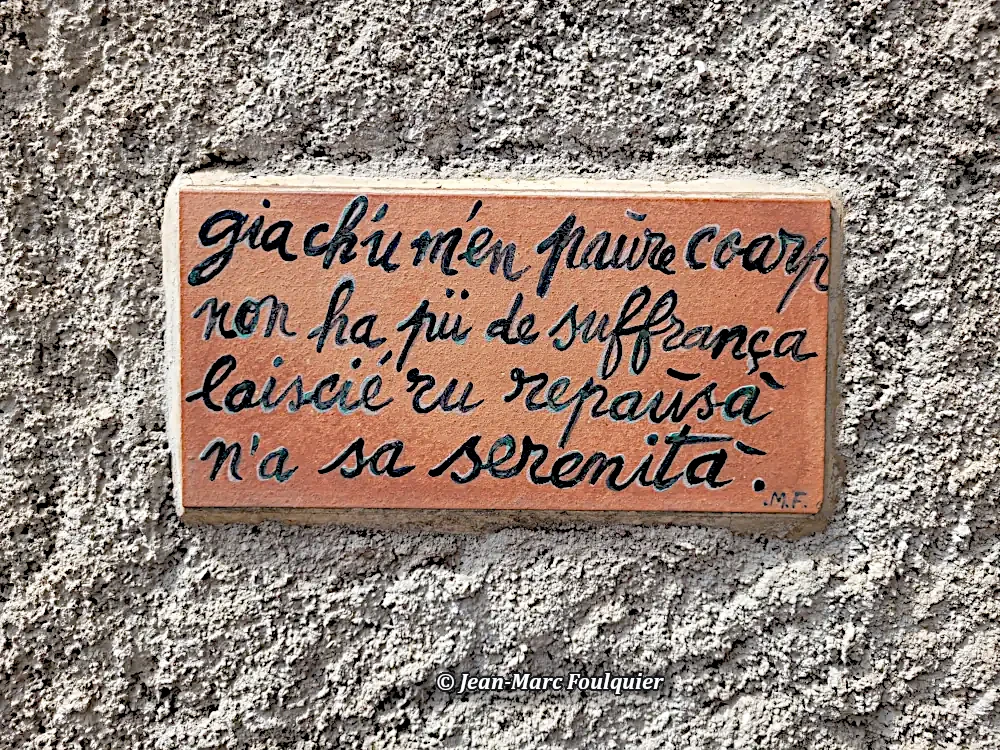 gia ch'ù m'én paũre coarp
non ha pü de suffrança
laiscié ru repaũsà
n'a sa serenità.
.M.F.
© Jean-Marc Foulquier